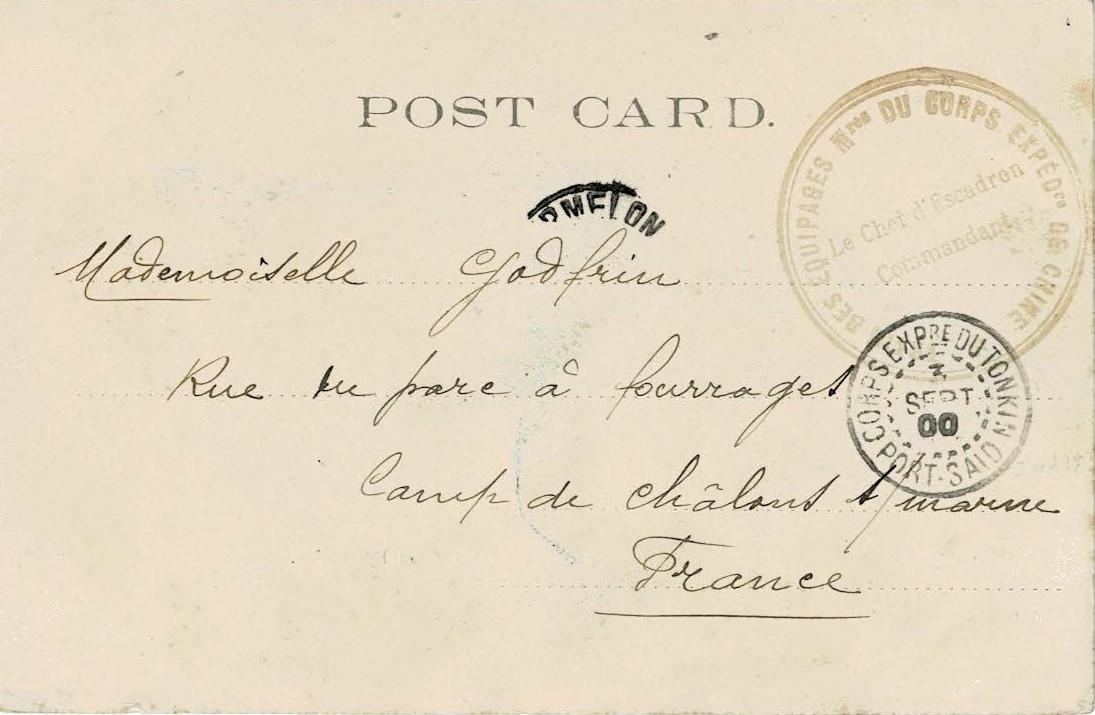 POST CARD.
DES EQUIPAGES Mres DU CORPS EXPÉDre DE CHINE
Le Chef d'Escadron
Commandant
RMELON
Mademoiselle Godfrin
Rue du parc à fourrages
Camp de châlons s/marne
France
CORPS EXPRE DU TONKIN
3
SEPT
00
PORT-SAID